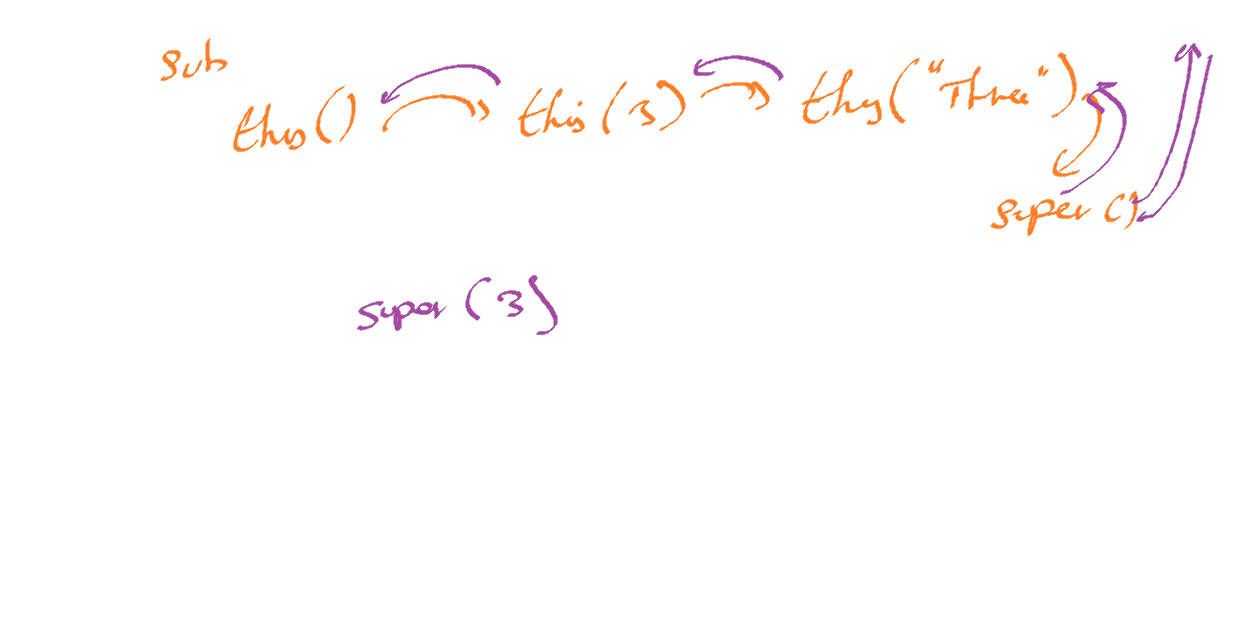 sub
this() this(3) this("Three")
super()
super(3)